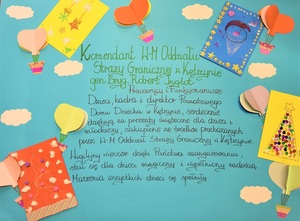 Komendant W-M Oddziału
Straży Granicznej w Kętrzynie
gen. bryg. Robert Inglot
Pracownicy i Funkcjonariusze
Dzieci, kadra i dyrektor Powiatowego
Domu Dziecka w Kętrzynie, serdecznie
dziękują za prezenty świąteczne dla dzieci i
młodzieży, zakupione ze środków przekazanych
przez W-M Oddział Straży Granicznej w Kętrzynie.
Wigilijny wieczór dzięki Państwa zaangażowaniu
stał się dla dzieci magiczny i wypełniony radością.
Marzenia wszystkich dzieci się spełniły